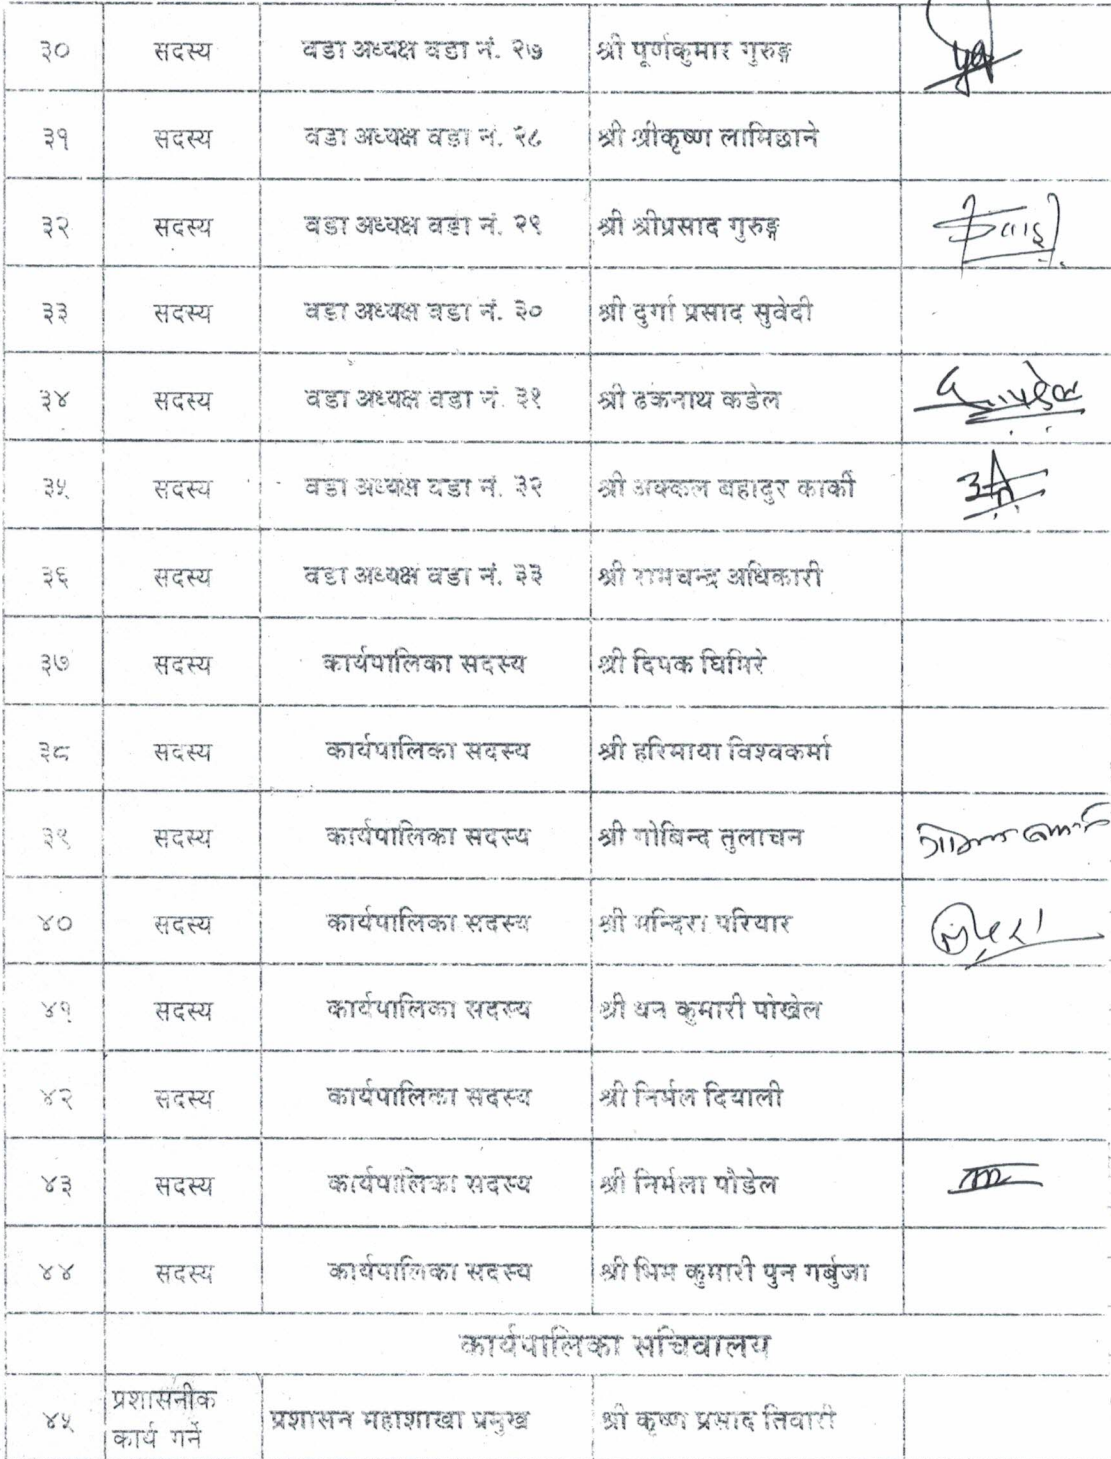 ३० सदस्य वडा अध्यक्ष वडा नं. २७ श्री पूर्णकुमार गुरुङ्ग
३१ सदस्य वडा अध्यक्ष वडा नं. २८ श्री श्रीकृष्ण लामिछाने
३२ सदस्य वडा अध्यक्ष वडा नं. २९ श्री श्रीप्रसाद गुरुङ्ग
३३ सदस्य वडा अध्यक्ष वडा नं. ३० श्री दुर्गा प्रसाद सुवेदी
३४ सदस्य वडा अध्यक्ष वडा नं. ३१ श्री ढकनाथ कडेल
३५ सदस्य वडा अध्यक्ष वडा नं. ३२ श्री अक्कल बहादुर कार्की
३६ सदस्य वडा अध्यक्ष वडा नं. ३३ श्री रामचन्द्र अधिकारी
३७ सदस्य कार्यपालिका सदस्य श्री दिपक घिमिरे
३८ सदस्य कार्यपालिका सदस्य श्री हरिमाया विश्वकर्मा
३९ सदस्य कार्यपालिका सदस्य श्री गोबिन्द तुलाचन
४० सदस्य कार्यपालिका सदस्य श्री मन्दिरा परियार
४१ सदस्य कार्यपालिका सदस्य श्री धन कुमारी पोखेल
४२ सदस्य कार्यपालिका सदस्य श्री निर्मल दियाली
४३ सदस्य कार्यपालिका सदस्य श्री निर्मला पौडेल
४४ सदस्य कार्यपालिका सदस्य श्री भिम कुमारी पुन गर्बुजा
कार्यपालिका सचिवालय
४५ प्रशासनीक प्रशासन महाशाखा प्रमुख श्री कृष्ण प्रसाद तिवारी
कार्य गर्ने